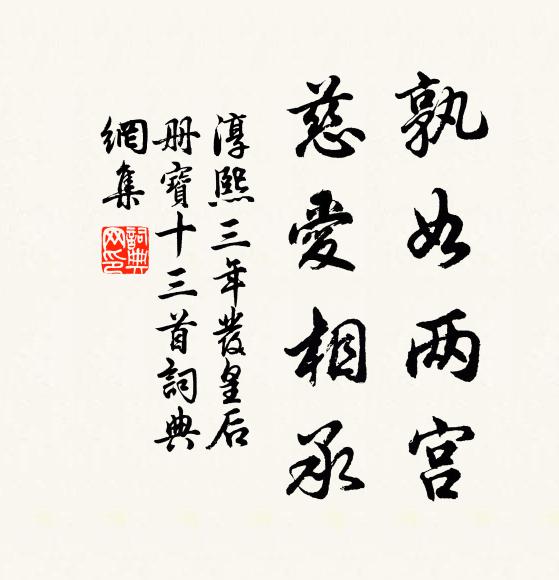 孰如两宫
慈愛相承
淳熙三年發皇后
册寶十三首詞典
網集
詞典网印